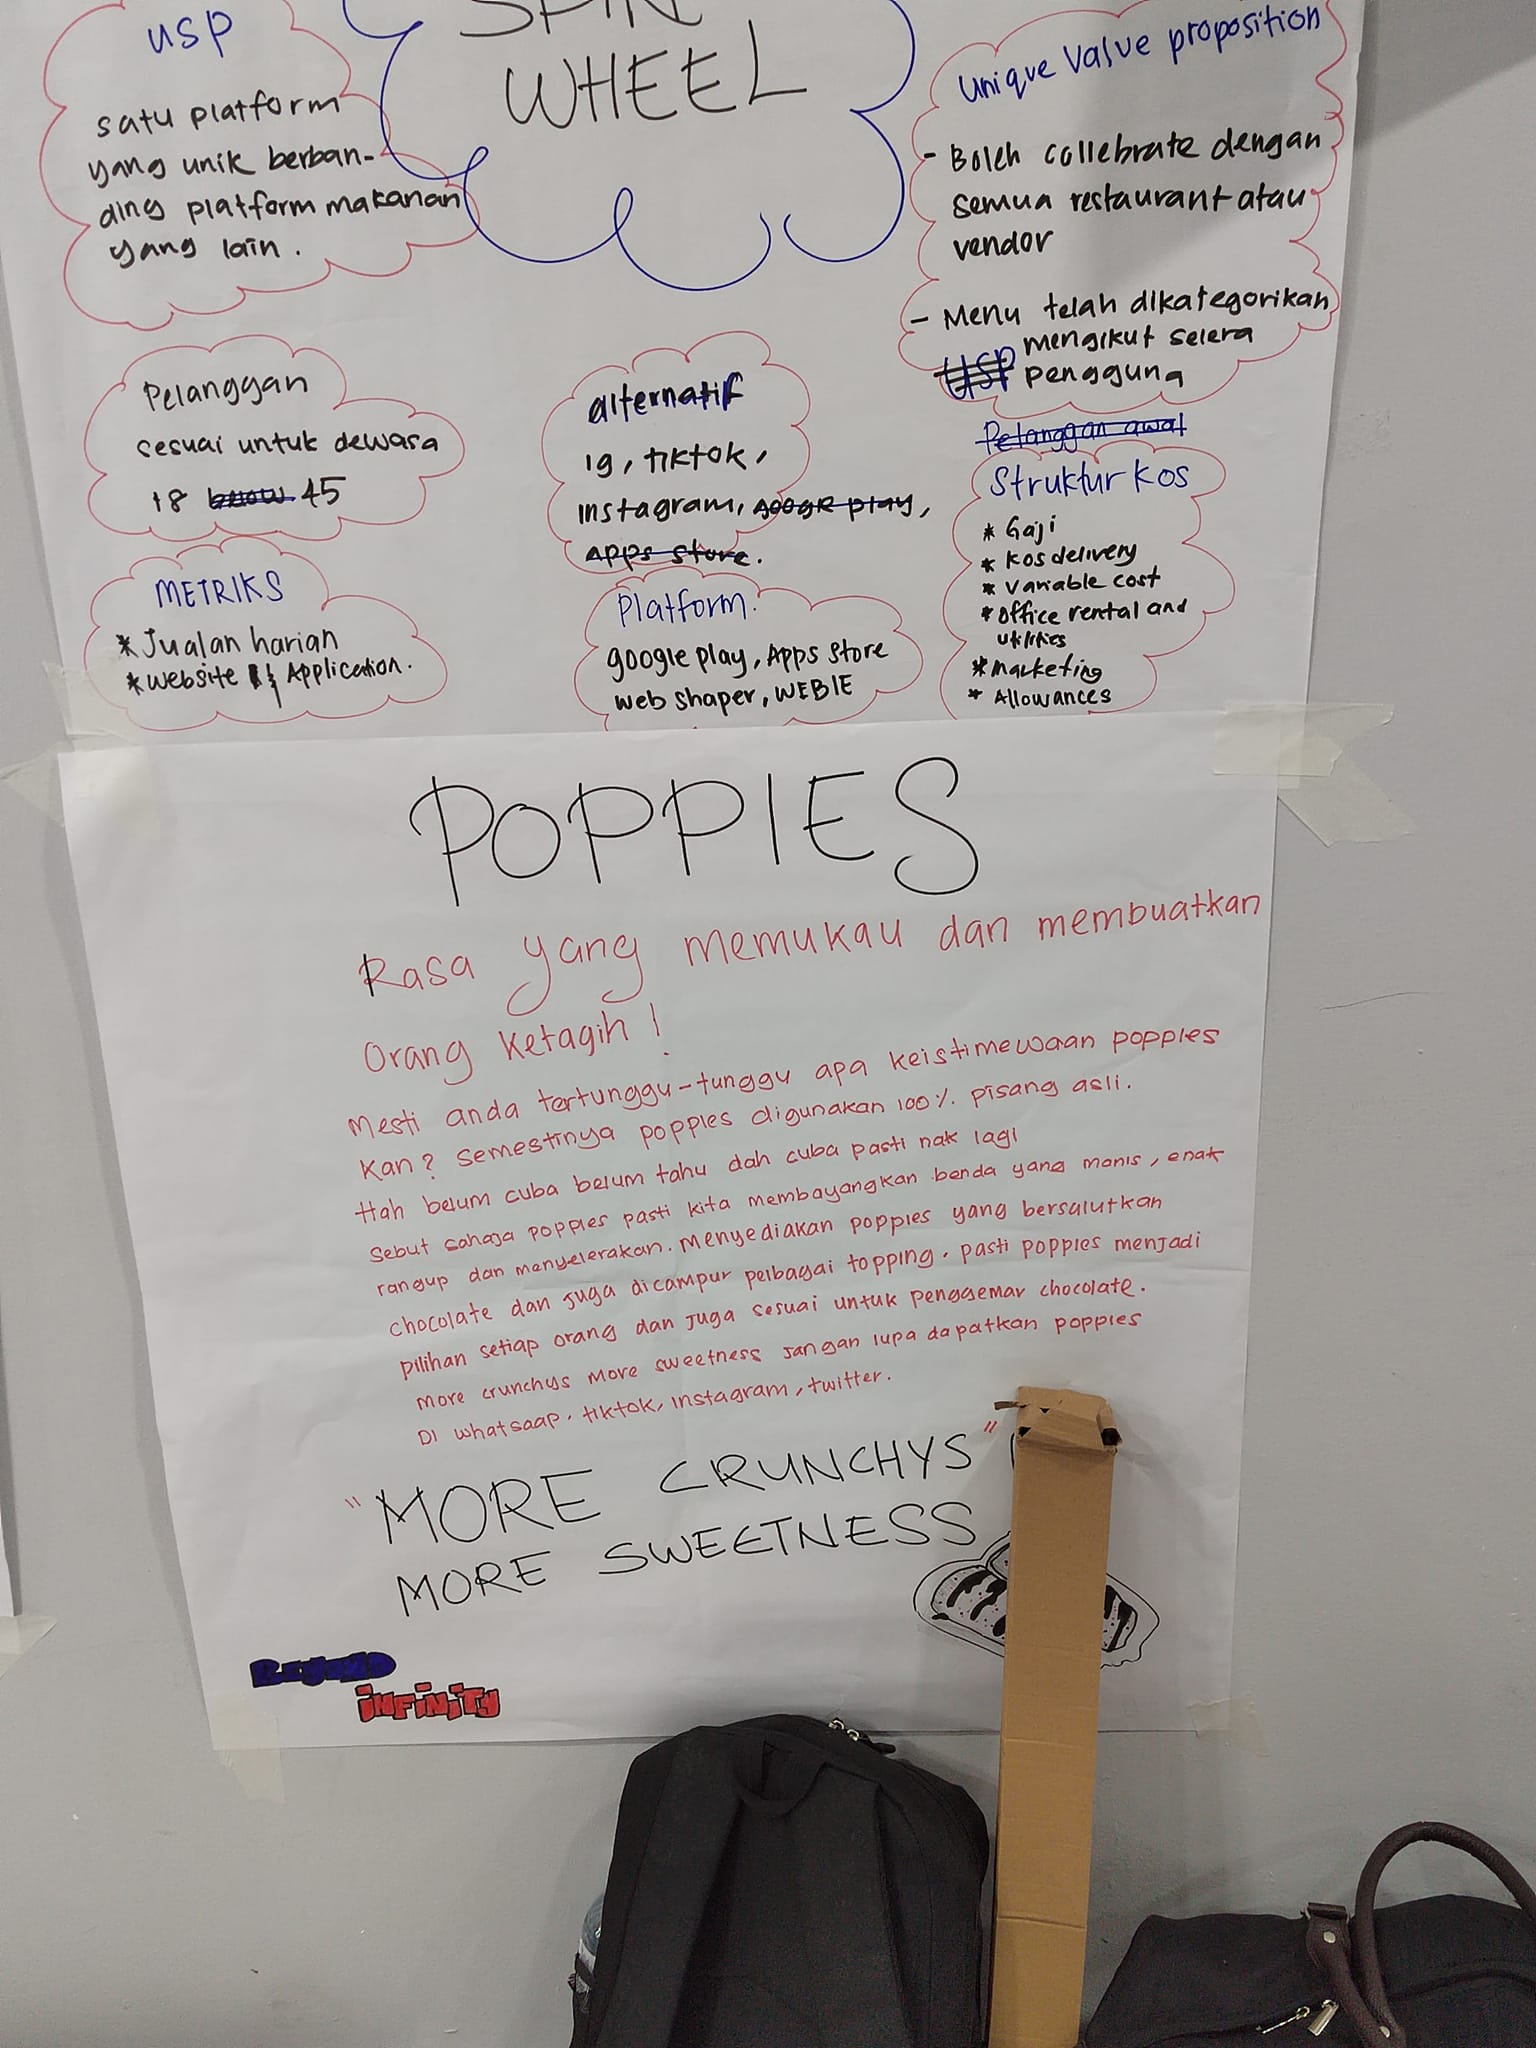 USP
satu platform
yang unik berban-
ding platform makanan
yang lain.
SPIN
WHEEL
Unique Value proposition
- Boleh collebrate dengan
semua restaurant atau
vendor
- Menu telah dikategorikan
mengikut selera
USP pengguna
Pelanggan
sesuai untuk dewasa
18 45
alternatif
ig, tiktok,
instagram, google play,
Apps store.
Pelanggan awal
Struktur Kos
* Gaji
* Kos delivery
* Variable cost
* Office rental and
utilities
* Marketing
* Allowances
METRIKS
* Jualan harian
* Website Application.
Platform.
google play, Apps store
web shaper, WEBIE
POPPIES
Rasa yang memukau dan membuatkan
orang ketagih!
Mesti anda tertunggu-tunggu apa keistimewaan poppies
kan? Semestinya poppies digunakan 100% pisang asli.
Hah belum cuba belum tahu dah cuba pasti nak lagi
Sebut sahaja poppies pasti kita membayangkan benda yang manis, enak
rangup dan menyelerakan. Menyediakan poppies yang bersalutkan
chocolate dan juga dicampur pelbagai topping. pasti poppies menjadi
pilihan setiap orang dan juga sesuai untuk penggemar chocolate.
More crunchys more sweetness jangan lupa dapatkan poppies
Di whatsaap, tiktok, instagram, twitter.
"MORE CRUNCHYS"
MORE SWEETNESS
Beyond
infinity